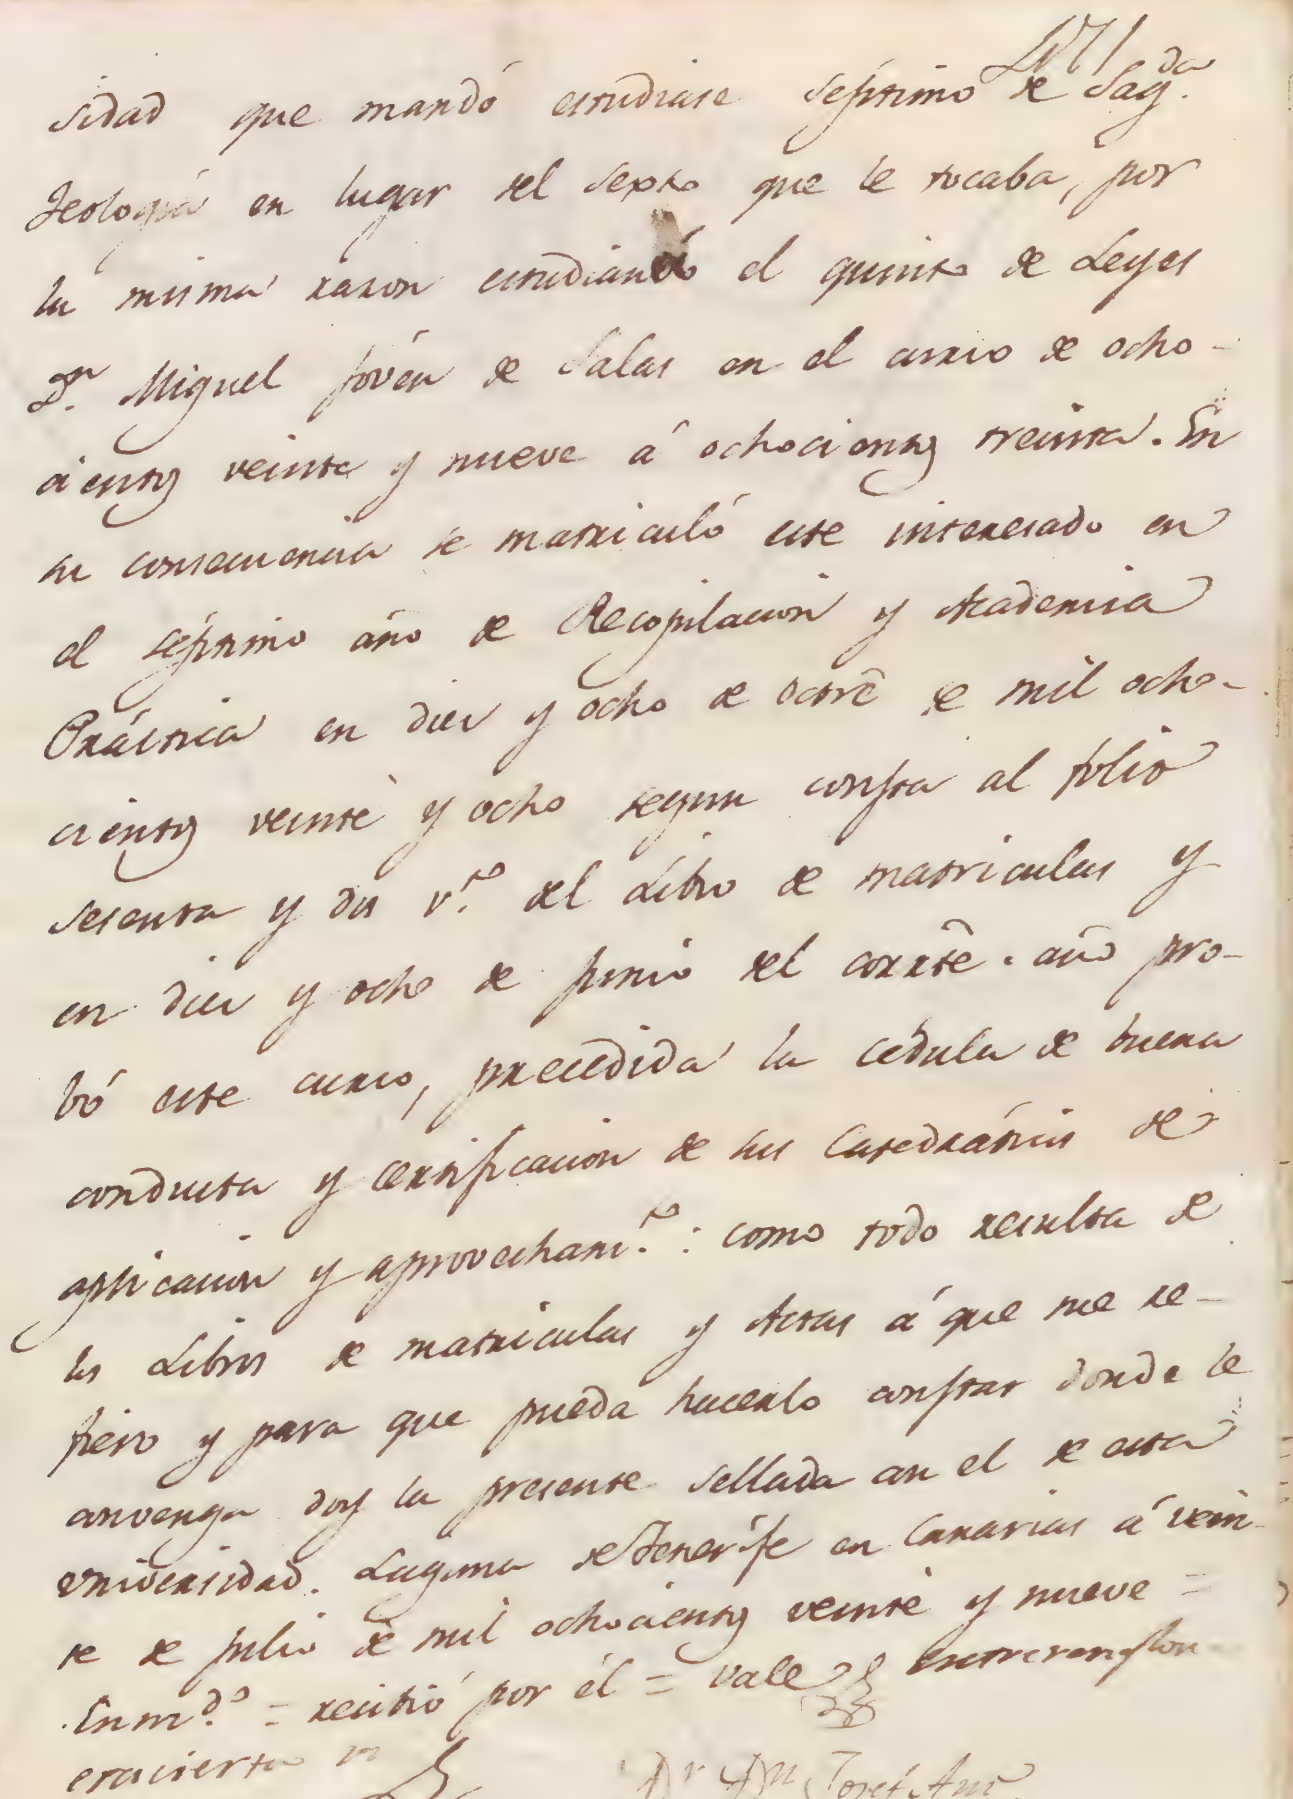 sidad que mandó estudiase séptimo de Sag.da
Teología en lugar del sexto que le tocaba, por
la misma razon estudiando el quinto de Leyes
D.n Miguel Jovén de Salas en el curso de ocho-
cientos veinte y nueve á ochocientos treinta. En
su consecuencia se matriculó este interesado en
el séptimo año de Recopilacion y Academia
Práctica en diez y ocho de octrē de mil ocho-
cientos veinte y ocho segun consta al folio
sesenta y dos v.to del Libro de matriculas y
en diez y ocho de junio del corrtē. año pro-
bó este curso, precedida la cédula de buena
conducta y certificacion de sus Catedráticos de
aplicacion y aprovecham.to: como todo resulta de
los Libros de matriculas y Actas á que me re-
fiero y para que pueda hacerlo constar donde le
convenga doy la presente sellada con el de esta
universidad. Laguna de Tenerife en Canarias á vein-
te de julio de mil ochocientos veinte y nueve =
Enm.do = recibió por él = vale entrerenglon
D.r D.n Josef Ant.o